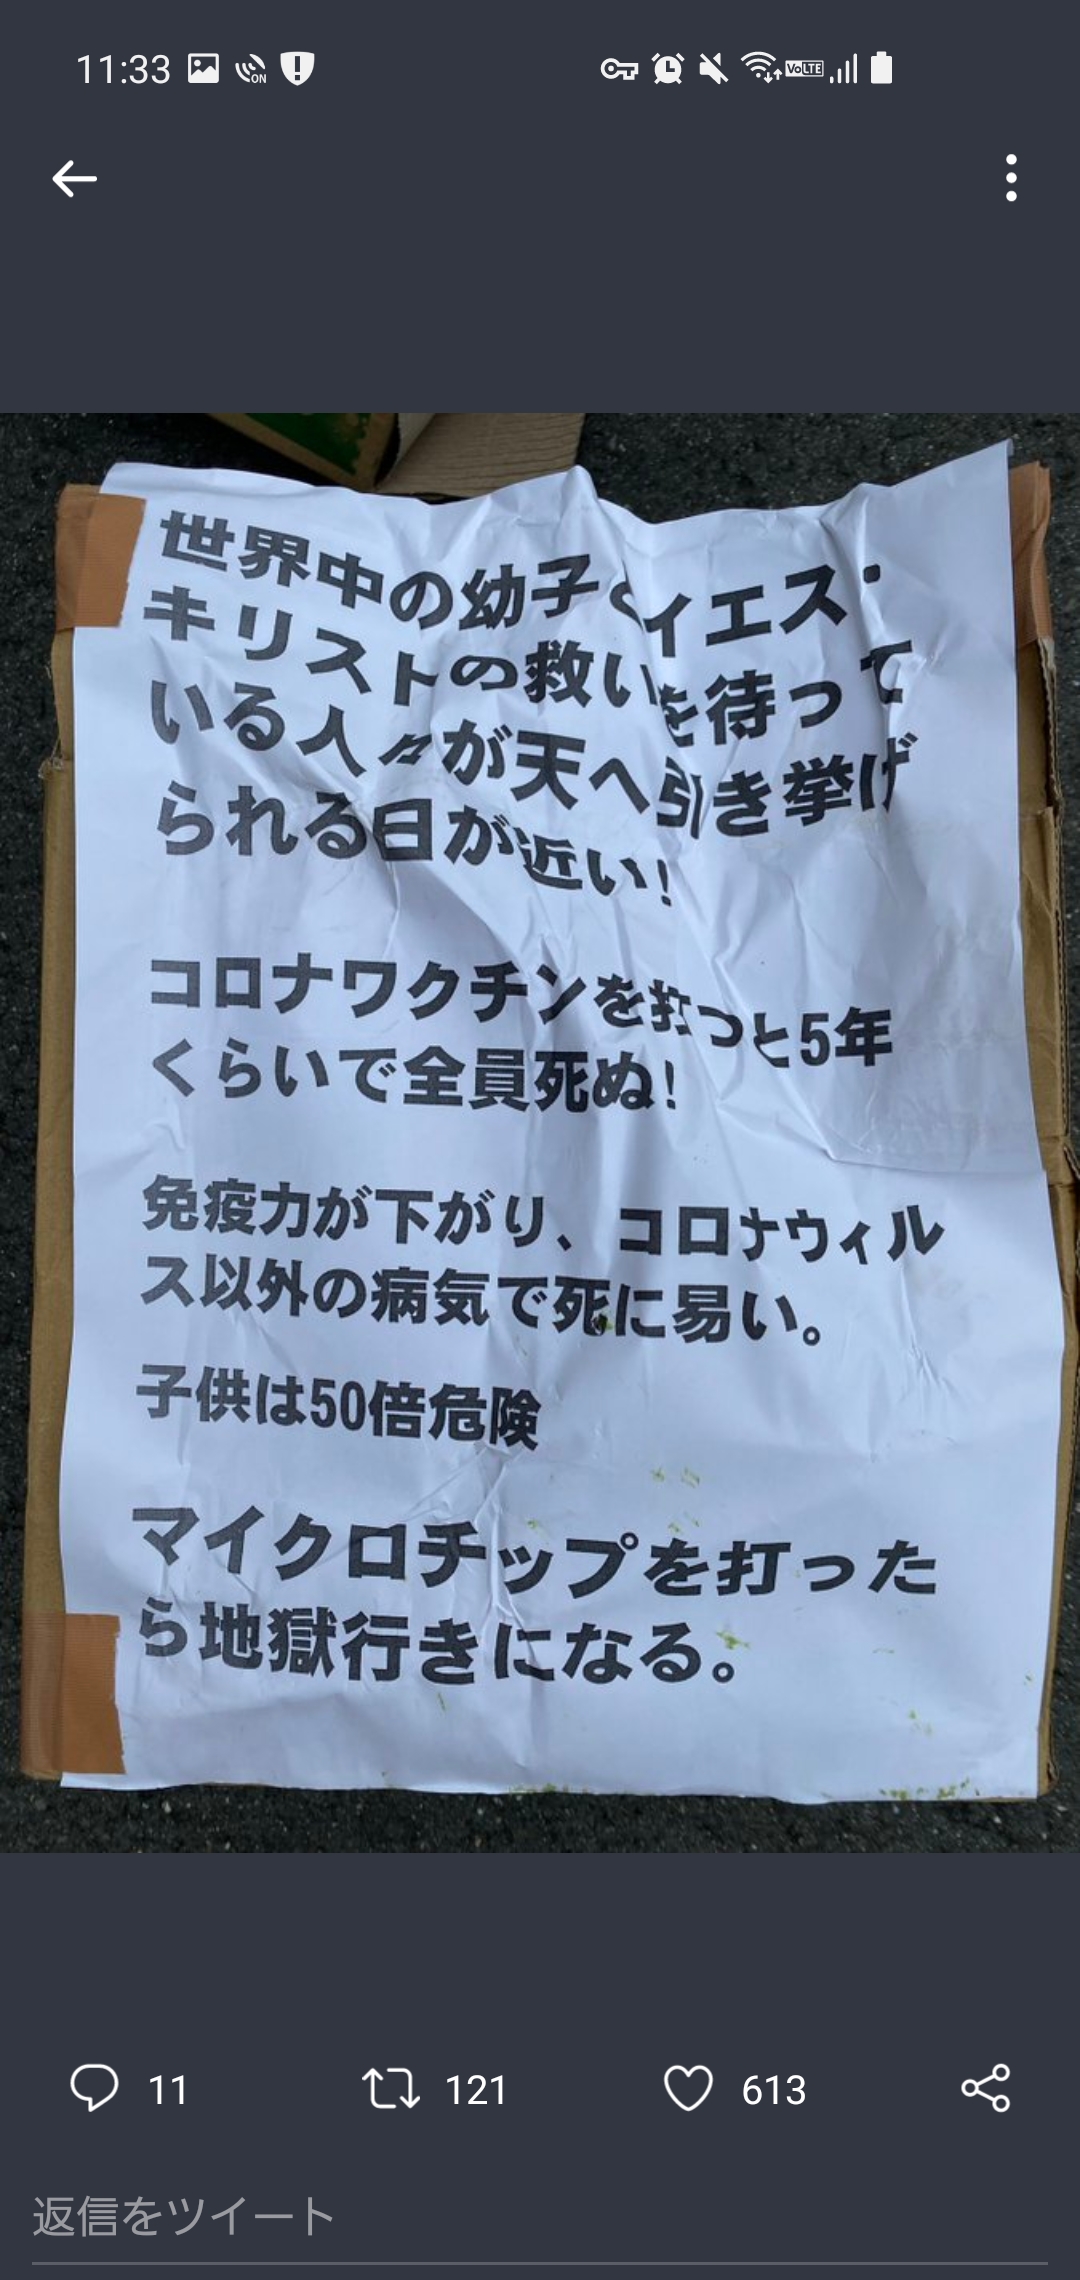 11:33
ON
VoLTE
世界中の幼子とイエス・
キリストの救いを待って
いる人々が天へ引き挙げ
られる日が近い！
コロナワクチンを打つと5年
くらいで全員死ぬ！
免疫力が下がり、コロナウィル
ス以外の病気で死に易い。
子供は50倍危険
マイクロチップを打った
ら地獄行きになる。
11
121
613
返信をツイート